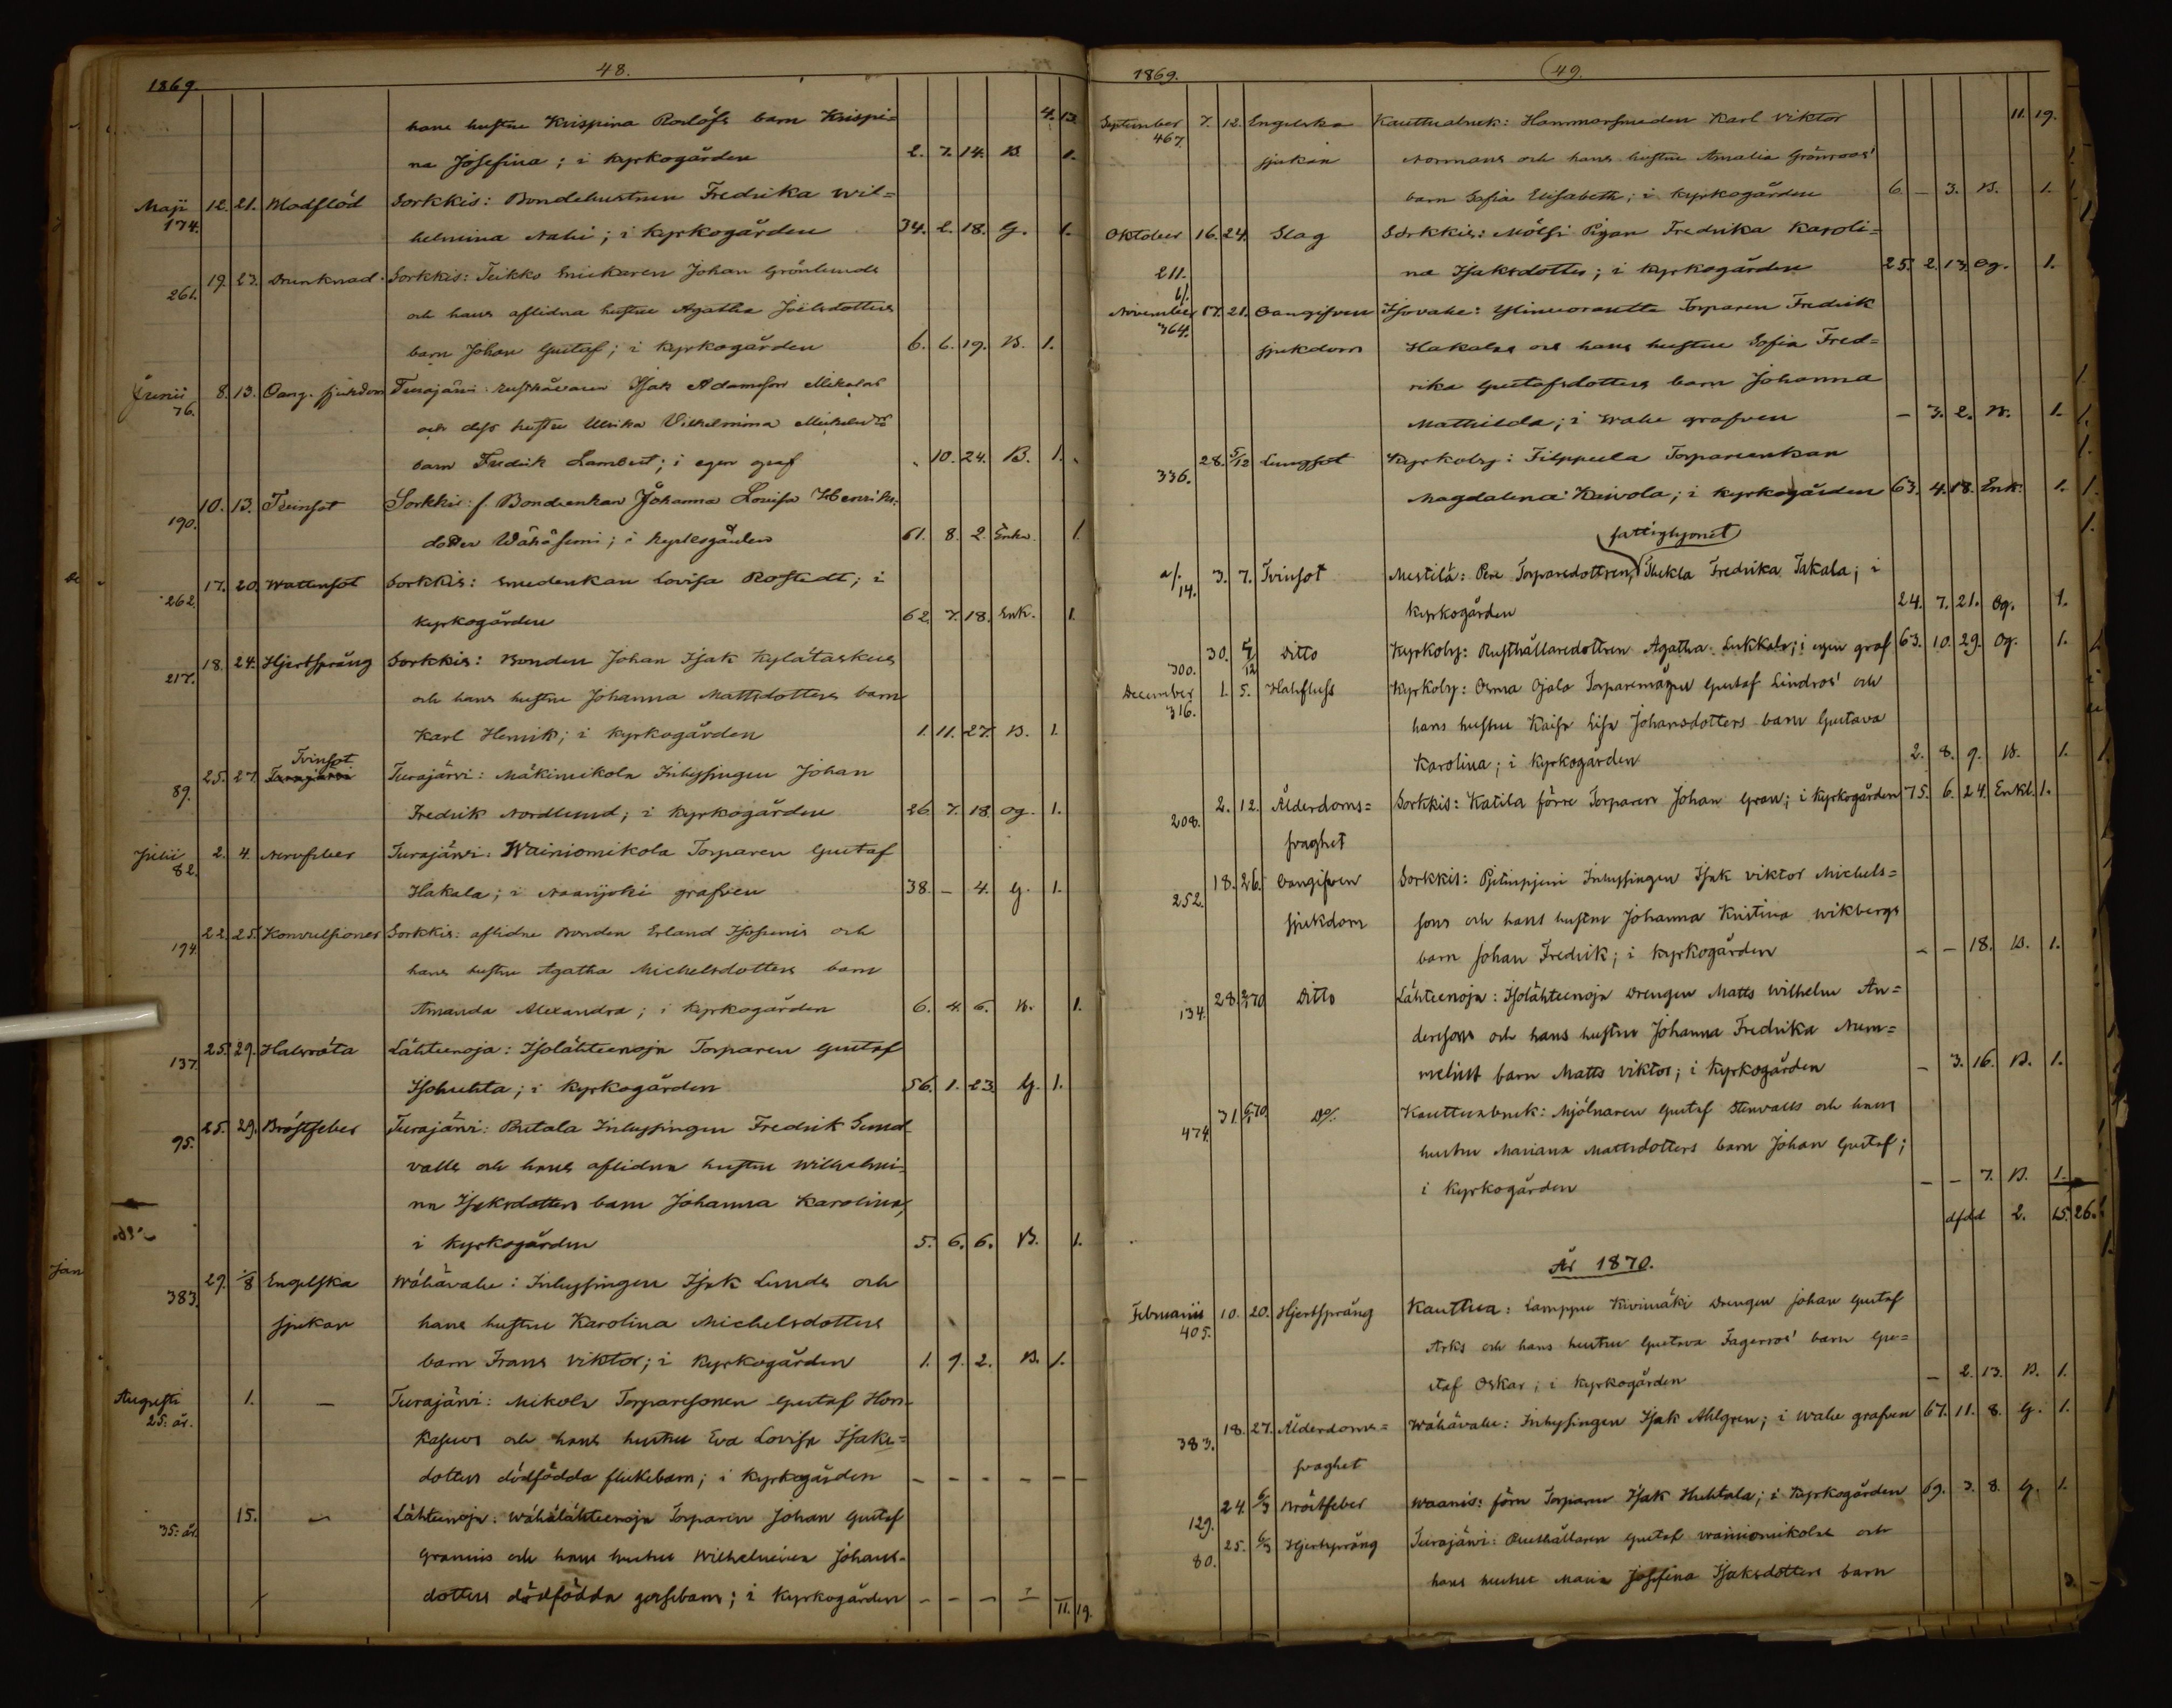 1869.
48.
hans hustru Krispina Roslöfs barn Krispi= 4. 13.
na Josefina; i kyrkogården 2. 7. 14. B. 1.
Maji 12. 21. Blodflöd Sorkkis: Bondehustrun Fredrika Wil=
174. helmina Nahi; i kyrkogården 34. 2. 18. G. 1.
261. 19. 23. Drunknad. Sorkkis: Teikko Snickaren Johan Grönlunds
och hans aflidna hustru Agatha Joelsdotters
barn Johan Gustaf; i kyrkogården 6. 6. 19. B. 1.
Junii 8. 13. Oang. sjukdom Turajärvi: Rusthållaren Isak Adamsson Mikolas
76. och dess hustru Ulrika Vilhelmina Michelsdr
barn Fredrik Lambert; i egen graf 10. 24. B. 1.
190. 10. 13. Tvinsot Sorkkis: f. Bondeenkan Johanna Lovisa Henriks
dotter Wähäsimi; i kyrkogården 61. 8. 2. Enka. 1.
262. 17. 20. Wattensot Sorkkis: Smedenkan Lovisa Rostedt; i
kyrkogården 62. 7. 18. Enk. 1.
217. 18. 24. Hjertsprång Sorkkis: Bonden Johan Isak Kylätaskus
och hans hustru Johanna Mattsdotters barn
Karl Henrik; i kyrkogården 1. 11. 27. B. 1.
Tvinsot
89. 25. 27. Turajärvi Turajärvi: Mäkimikola Inhysingen Johan
Fredrik Nordlund; i kyrkogården 26. 7. 18. Og. 1.
Julii 2. 4. Nervfeber Turajärvi: Wainiomikola Torparen Gustaf
82. Hakala; i Naarijoki grafven 38. - 4. G. 1.
194. 22. 25. Konvulsioner Sorkkis: aflidne Bonden Erland Isosimis och
hans hustru Agatha Michelsdotters barn
Amanda Alexandra; i kyrkogården 6. 4. 6. B. 1.
137. 25. 29. Halsröta Lähteenoja: Isolähteenoja Torparen Gustaf
Isohuhta; i kyrkogården 56. 1. 23. G. 1.
95. 25. 29. Bröstfeber Turajärvi: Rutala Inhysingen Fredrik Sund
valls och hans aflidna hustru Wilhelmi=
na Isaksdotters barn Johanna Karolina;
i kyrkogården 5. 6. 6. B. 1.
383. 29. 1/8 Engelska Wähävahe: Inhysingen Isak Lunds och
sjukan hans hustru Karolina Michelsdotters
barn Frans Viktor; i kyrkogården 1. 9. 2. B. 1.
Augusti 1. - Turajärvi: Mikola Torparesonen Gustaf Hon
25: år. kasuos och hans hustru Eva Lovisa Isaks=
dotters dödfödda flickebarn; i kyrkogården - - - - - -
35: år. 15. - Lähteenoja: Wähälähteenoja Torparen Johan Gustaf
Grannis och hans hustru Wilhelmina Johans=
dotters dödfödda gossebarn; i kyrkogården - - - - 11. 19.
Jan
1869.
49.
September 7. 12. Engelska Kauttuabruk: Hammarsmeden Karl Viktor 11. 19.
467. sjukan Normans och hans hustru Amalia Grönroos'
barn Sofia Elisabeth; i kyrkogården 6. - 3. B. 1.
Oktober 16. 24. Slag Sorkkis: Mölsi Pigan Fredrika Karoli=
211. na Isaksdotter; i kyrkogården 25. 2. 13. Og. 1.
November 17. 21. Oangifven Isovahe: Ylinevorantta Torparen Fredrik
364. sjukdom Hakalas och hans hustru Sofia Fred=
rika Gustafsdotters barn Johanna
Mathilda; i Wahe grafven - 3. 2. B. 1.
336. 28. 5/12 Lungsot Kyrkoby: Filppula Torpareenkan
Magdalena Kaivola; i kyrkogården 63. 4. 18. Enk. 1.
fattighjonet
14. 3. 7. Tvinsot Mestilä: Pere Torparedottren, Thekla Fredrika Takala; i
kyrkogården 24. 7. 21. Og. 1.
300. 30. 5/12 Ditto Kyrkoby: Rusthållaredottren Agatha Lukkala; i egen graf 63. 10. 29. Og. 1.
December 1. 5. Halsfluss Kyrkoby: Osma Ojala Torparemågen Gustaf Lindros' och
316. hans hustru Kaisa Lisa Johansdotters barn Gustava
Karolina; i kyrkogården 2. 8. 9. B. 1.
208. 2. 12. Ålderdoms= Sorkkis: Katila förre Torparen Johan Gran; i kyrkogården 75. 6. 24. Enkl. 1.
svaghet
252. 18. 26. Oangifven Sorkkis: Inhysingen Isak Viktor Michels=
sjukdom sons och hans hustru Johanna Kristina Wikbergs
barn Johan Fredrik; i kyrkogården - - 18. B. 1.
134. 28. 2/1 70 Ditto Lähteenoja: Isolähteenoja Drengen Matts Wilhelm An=
derssons och hans hustru Johanna Fredrika Num=
melins barn Matts Viktor; i kyrkogården - 3. 16. B. 1.
474. 31. 6/1 70 Do/. Kauttuabruk: Mjölnaren Gustaf Stenvalls och hans
hustru Mariana Mattsdotters barn Johan Gustaf;
i kyrkogården - - 7. B. 1.
dfdd 2. 15. 26.
År 1870.
Februarii 10. 20. Hjertsprång Kauttua: Lamppu Kivimäki Drengen Johan Gustaf
405. Arks och hans hustru Gustava Fagerros' barn Gu=
staf Oskar; i kyrkogården - 2. 13. B. 1.
383. 18. 27. Ålderdoms= Wähävahe: Inhysingen Isak Ahlgren; i Wahe grafven 67. 11. 8. G. 1.
svaghet
129. 24. 6/3 Bröstfeber Waanis: förre Torparen Isak Huhtala; i kyrkogården 69. 3. 8. G. 1.
80. 25. 6/3 Hjertsprång Turajärvi: Rusthållaren Gustaf Wainiomikolas och
hans hustru Maria Josefina Isaksdotters barn 3. -